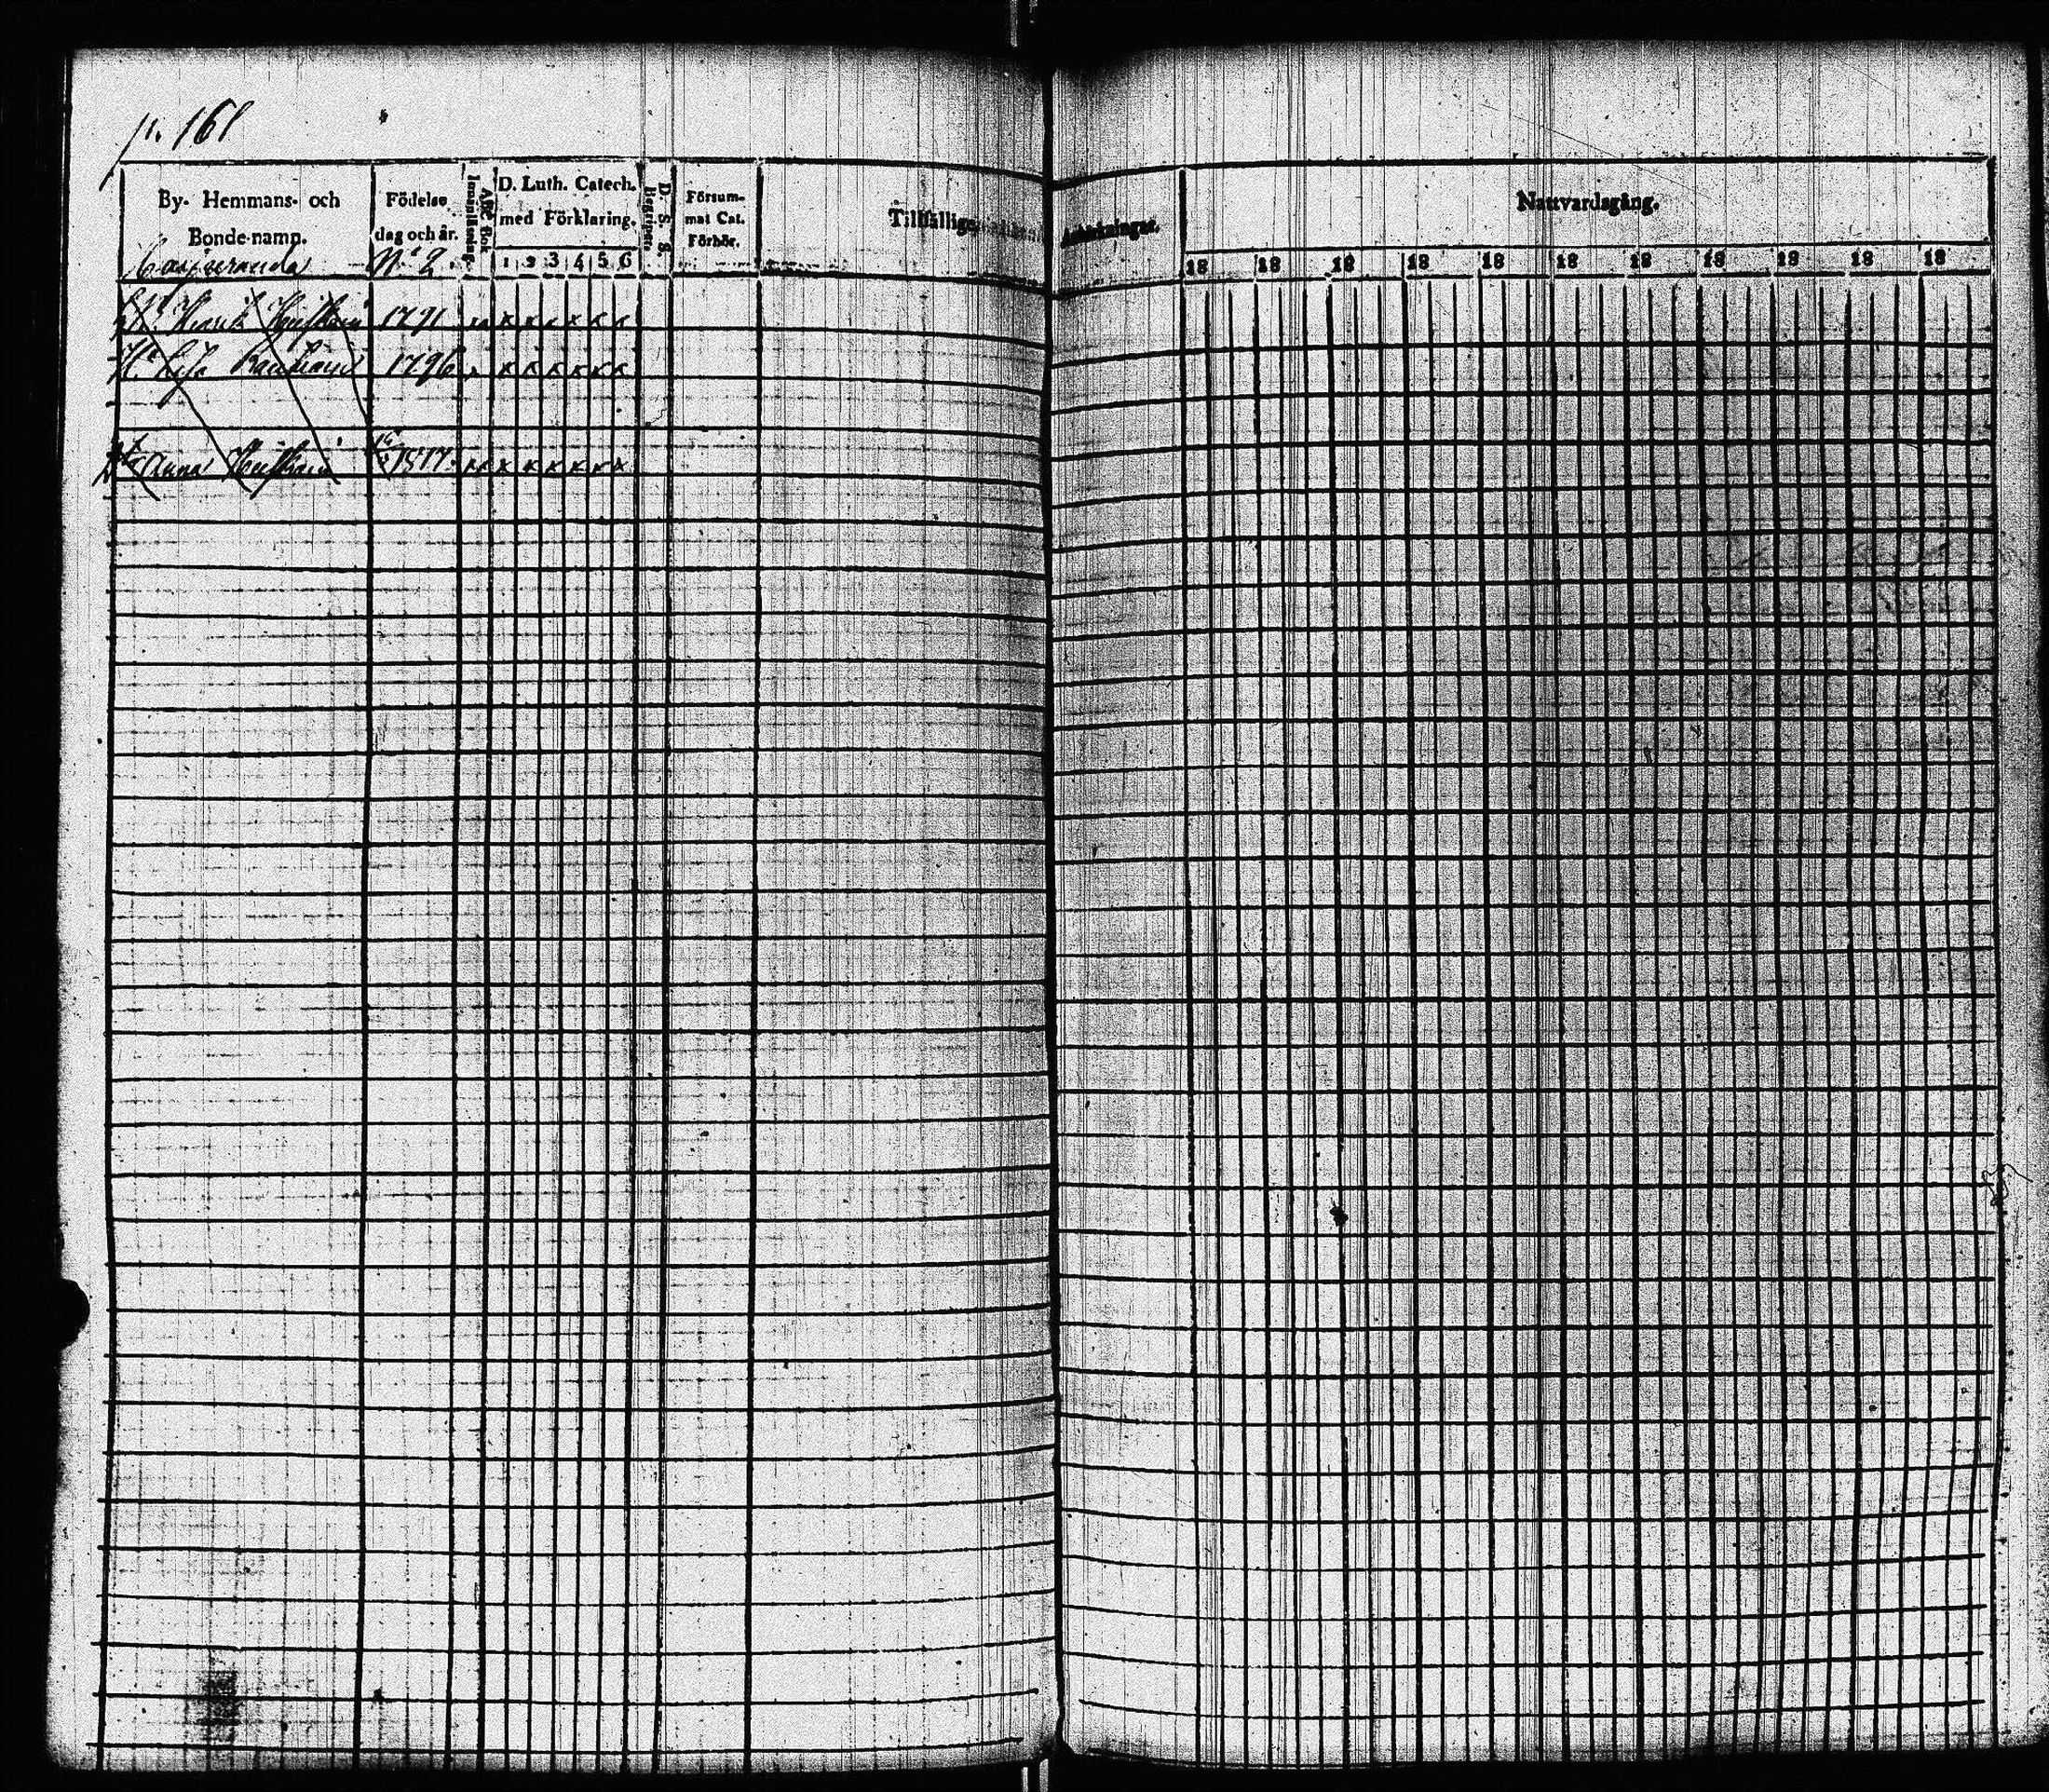 p. 161
By- Hemmans- och
Bonde-namn.
Födelse
dag och år.
ABC Bok
Innantläsning.
D. Luth. Catech.
med Förklaring.
1 2 3 4 5 6
D. S. S.
Begripes.
Försum-
mat Cat.
Förhör.
Tillfälliga
Anmärkningar.
Nattvardsgång.
18 18 18 18 18 18 18 18 18 18 18
No 2.
1791 x x x x x x
Lisa 1796 x x x x x x
Anna 1817 x x x x x x